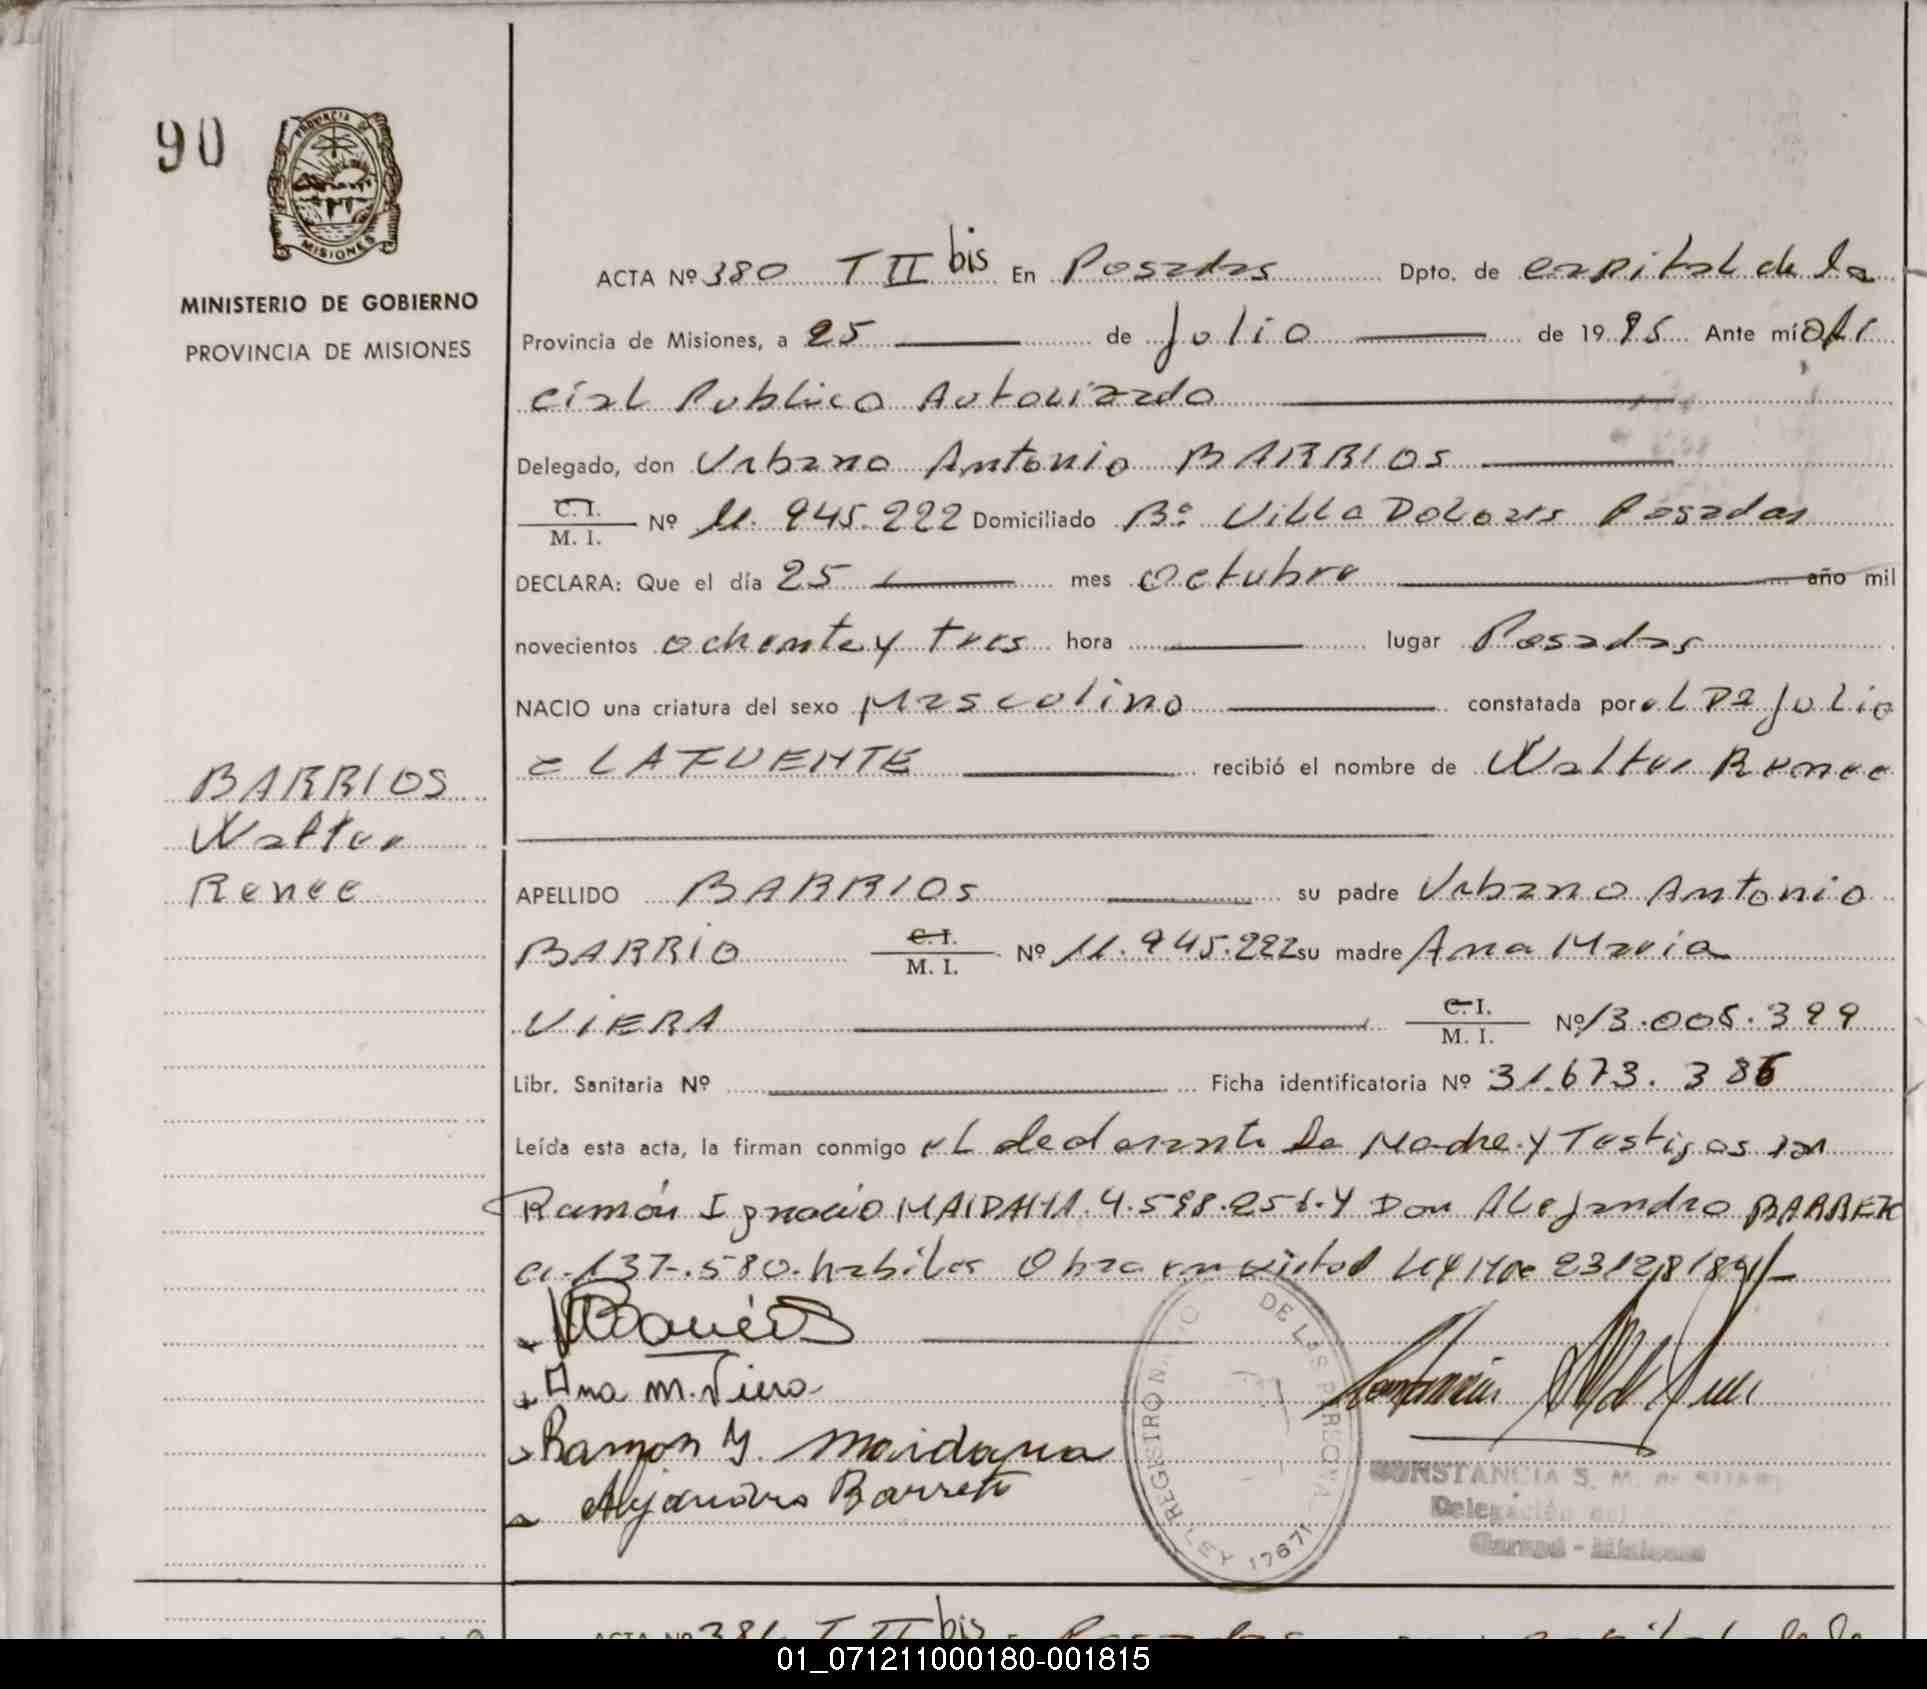 90
PROVINCIA DE
MISIONES
MINISTERIO DE GOBIERNO
PROVINCIA DE MISIONES
ACTA Nº 380 T II bis En Posadas Dpto. de capital de la
Provincia de Misiones, a 25 de Julio de 1985 Ante mí Ofi
cial Publico Autorizado
Delegado, don Urbano Antonio BARRIOS
C. I. / M. I. Nº 11.945.222 Domiciliado Bº Villa Dolores Posadas
DECLARA: Que el día 25 mes octubre año mil
novecientos ochenta y tres hora lugar Posadas
NACIO una criatura del sexo Masculino constatada por el Dr Julio
C LAFUENTE recibió el nombre de Walter Renee
BARRIOS
Walter
Renee
APELLIDO BARRIOS su padre Urbano Antonio
BARRIO C. I. / M. I. Nº 11.945.222 su madre Ana Maria
VIERA C. I. / M. I. Nº 13.005.399
Libr. Sanitaria Nº Ficha identificatoria Nº 31.673.386
Leída esta acta, la firman conmigo el declarante la Madre y Testigos
Ramón Ignacio MAIDANA 4.598.256 y Don Alejandro BARRETO
ci. 137.580 habiles Obra en virtud Ley Nº 23128/84
Ana M. Viera
Ramon Y. Maidana
Alejandro Barreto
REGISTRO NA
DE LAS PERSONA
LEY 17671
CONSTANCIA S. M. de
Delegación
Garupá - Misiones
ACTA Nº 381 T II bis
01_071211000180-001815